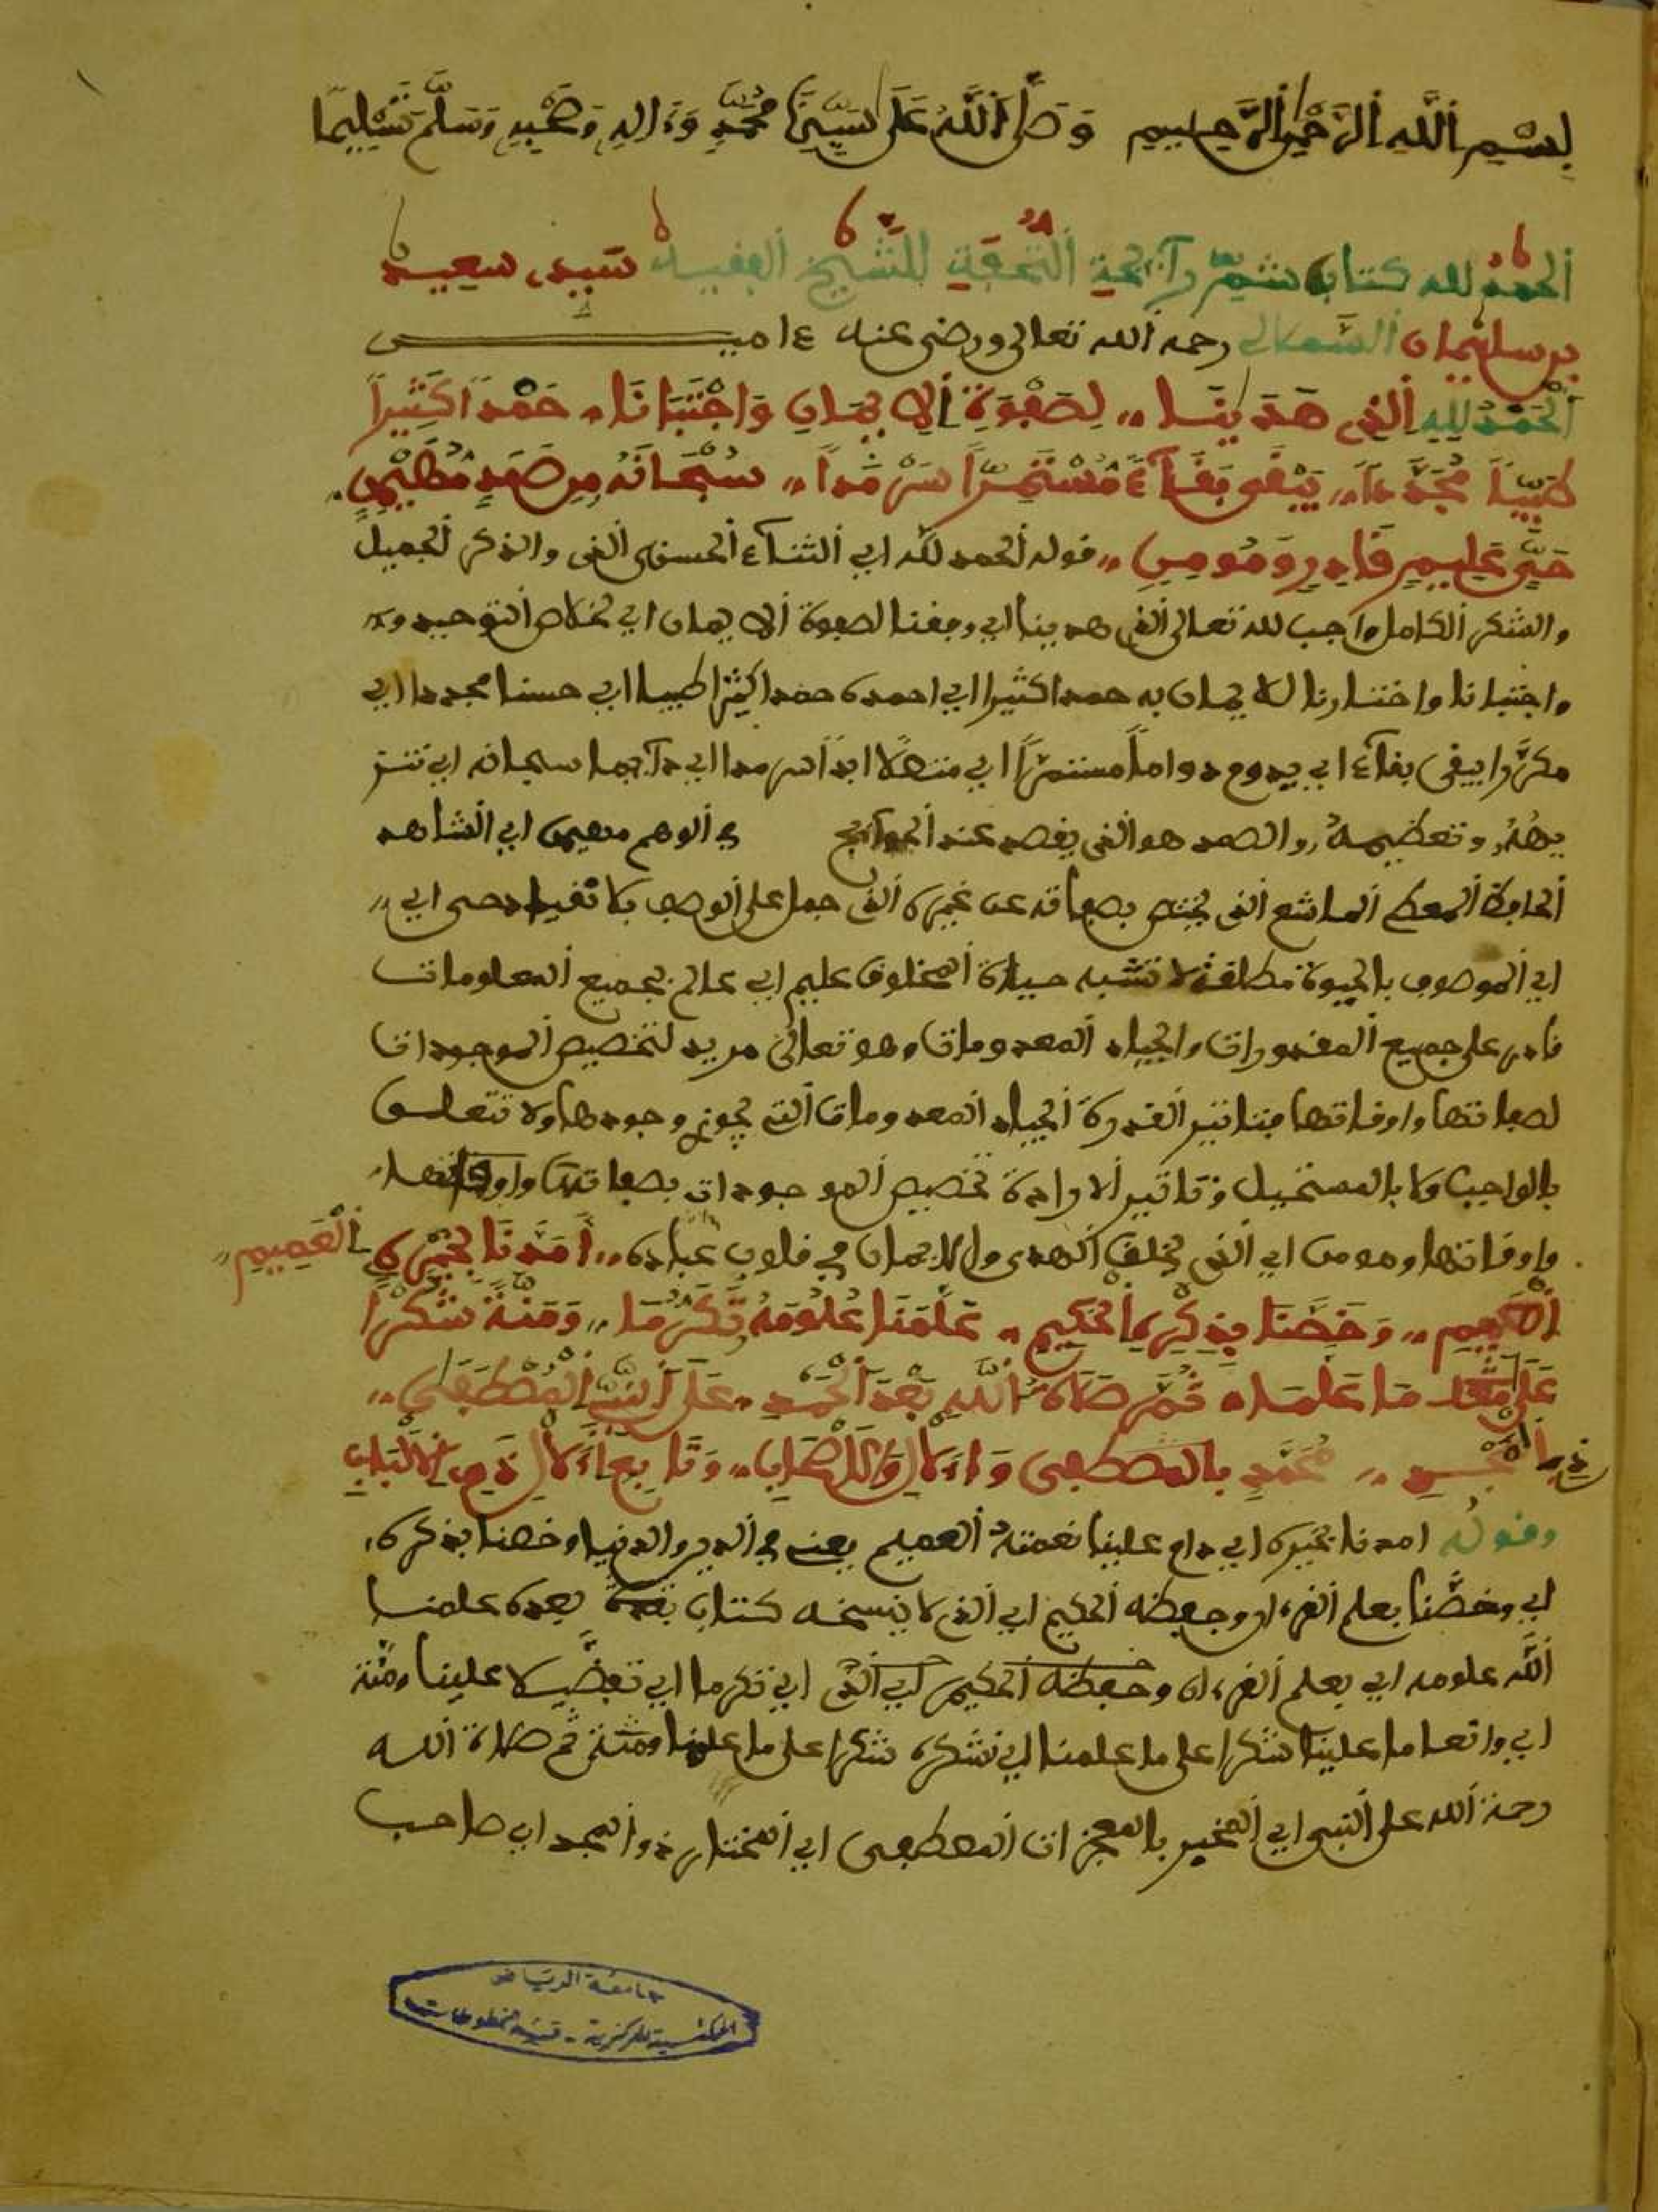 بِسْمِ اللَّهِ الرَّحْمَٰنِ الرَّحِيمِ وَصَلَّى اللَّهُ عَلَى سَيِّدِنَا مُحَمَّدٍ وَءَالِهِ وَصَحْبِهِ وَسَلَّمَ تَسْلِيمًا
الحمد لله كتاب شم رآئحة التحفة للشيخ الفقيه سيد سعيد
بن سليمان السملالي رحمه الله تعالى ورضي عنه ءامين
الْحَمْدُ لِلهِ الذي هَدَينَا لِصَفْوَةِ الإيمَانِ وَاجْتَبَانَا حَمْداً كَثِيراً
طَيِّباً مُجَدَّداً يَبْقَى بَقَآءً مُسْتَمِرّاً سَرْمَداً سُبْحَانَهُ مِن صَمَدٍ مُهَيْمِنِ
حَيٍّ عَلِيمٍ قَادِرٍ وَمُومِنِ قوله الحمد لله اي الثناء الحسنى الذي والذكر الجميل
والشكر الكامل واجب لله تعالى الذي هدينا اي وفقنا لصفوة الايمان اي خلاص التوحيد
واجتبانا واختارنا للايمان به حمدا كثيرا اي احمده حمدا كثيرا طيبا اي حسنا مجددا اي
مكررا يبقى بقآء اي يدوم دواما مستمرا اي متصلا ابدا سرمدا اي دآيما سبحانه اي تنز
يهه وتعظيمه والصمد هو الذي يقصد عند الحوآئج في الوهم مهيمن اي الشاهد
الحافظ الذي يختص بصفاته عن غيره الذي حمل على الوصف بلا تقييد حي اي
اي الموصوف بالحيوة مطلقة لا تشبه حياة المخلوق عليم اي عالم بجميع المعلومات
قادر على جميع المقدورات وايجاد المعدومات وهو تعالى مريد لتخصيص الموجودات
لصفاتها واوقاتها فتاثير القدرة ايجاد المعدومات التي يجوز وجودها ولا تتعلق
بالواجب ولا بالمستحيل وتاثير الارادة تخصيص الموجودات بصفاتها
واوقاتها ومومن اي الذي يخلق الهدى والايمان في قلوب عباده أَمَدَّنَا بِخَيْرِهِ الْعَمِيمِ
وَخَصَّنَا بِذِكْرِهِ الْحَكِيمِ عَلَّمَنَا عُلُومَهُ تَكَرُّمَا وَمَنَّةً شُكْراً
عَلَى مَا عَلَّمَا ثُمَّ صَلَاةُ اللَّهِ بَعْدَ الْحَمْدِ عَلَى النَّبِيِّ الْمُصْطَفَى
ذي الْمَجْدِ مُحَمَّدٍ بالمصطفى وَالآلِ وَالأصْحَابِ وَتَابِعِ الآلِ ذوي الألْبَابِ
وقوله امدنا بخيره اي دام علينا نعمته العميم يعني في الدين والدنيا وخصنا بذكره
اي وخصنا بعلم القرءان وحفظه الحكيم اي الذي لا ينسخه كتاب بعده علمنا
الله علومه اي بعلم القرءان وحفظه الحكيم اي الذي اي تكرما اي تفضيلا علينا ومنة
اي وانعاما علينا شكرا على ما علمنا اي نشكره شكرا على ما علمنا ومنة ثم صلاة الله
رحمة الله على النبي اي المخبر بالمعجزات المصطفى اي المختار ذو المجد اي صاحب
جامعة الرياض
المكتبة المركزية - قسم المخطوطات